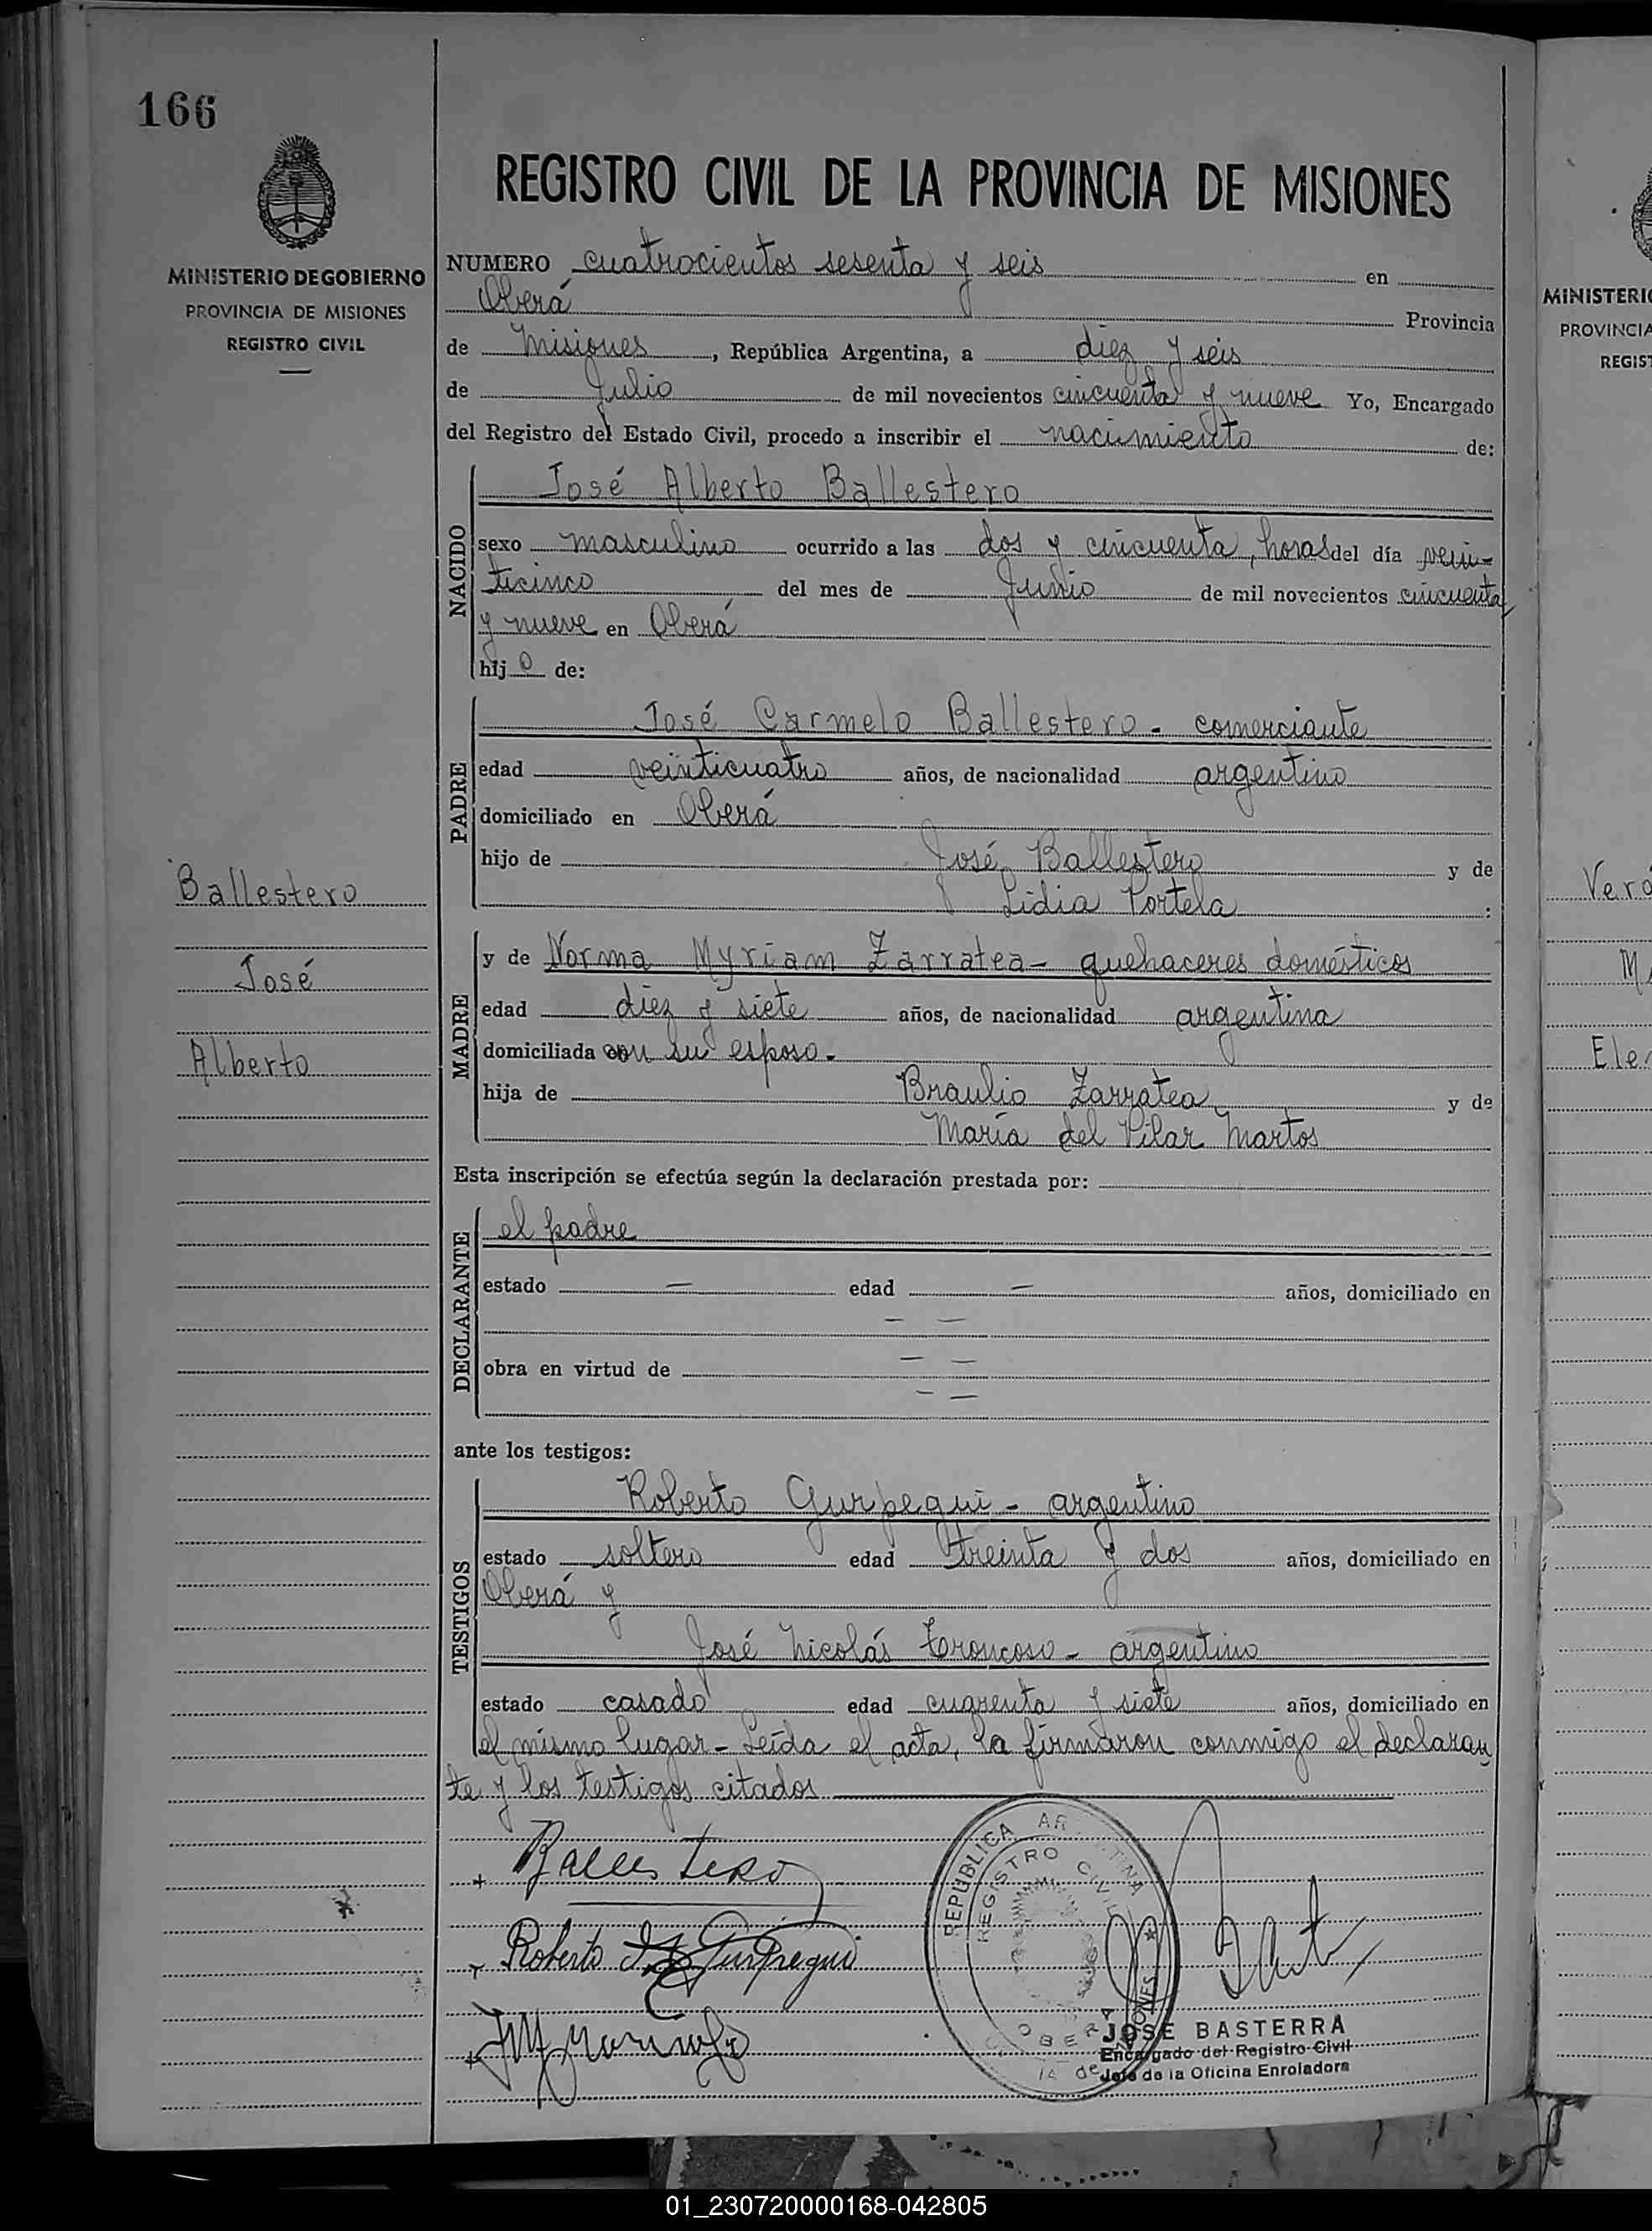 166
MINISTERIO DE GOBIERNO
PROVINCIA DE MISIONES
REGISTRO CIVIL
Ballestero
José
Alberto
REGISTRO CIVIL DE LA PROVINCIA DE MISIONES
NUMERO cuatrocientos sesenta y seis en
Oberá Provincia
de Misiones, República Argentina, a diez y seis
de Julio de mil novecientos cincuenta y nueve Yo, Encargado
del Registro del Estado Civil, procedo a inscribir el nacimiento de:
NACIDO
José Alberto Ballestero
sexo masculino ocurrido a las dos y cincuenta, horas del día vein-
ticinco del mes de Junio de mil novecientos cincuenta
y nueve en Oberá
hijo de:
PADRE
José Carmelo Ballestero - comerciante
edad veinticuatro años, de nacionalidad argentino
domiciliado en Oberá
hijo de José Ballestero y de
Lidia Portela :
MADRE
y de Norma Myriam Zarratea - quehaceres domésticos
edad diez y siete años, de nacionalidad argentina
domiciliada con su esposo.
hija de Braulio Zarratea y de
María del Pilar Martos
Esta inscripción se efectúa según la declaración prestada por:
DECLARANTE
el padre
estado — edad — años, domiciliado en
— —
obra en virtud de — —
— —
ante los testigos:
TESTIGOS
Roberto Gurpegui - argentino
estado soltero edad treinta y dos años, domiciliado en
Oberá y
José Nicolás Troncoso - argentino
estado casado edad cuarenta y siete años, domiciliado en
el mismo lugar - Leída el acta, la firmaron conmigo el declaran
te y los testigos citados
+ Ballestero
Roberto Gurpegui
REPUBLICA ARGENTINA
REGISTRO CIVIL
OBERA
JOSE BASTERRA
Encargado del Registro Civil
Jefe de la Oficina Enroladora
MINISTERI
PROVINCIA
REGIST
Ver
M
Ele
01_230720000168-042805